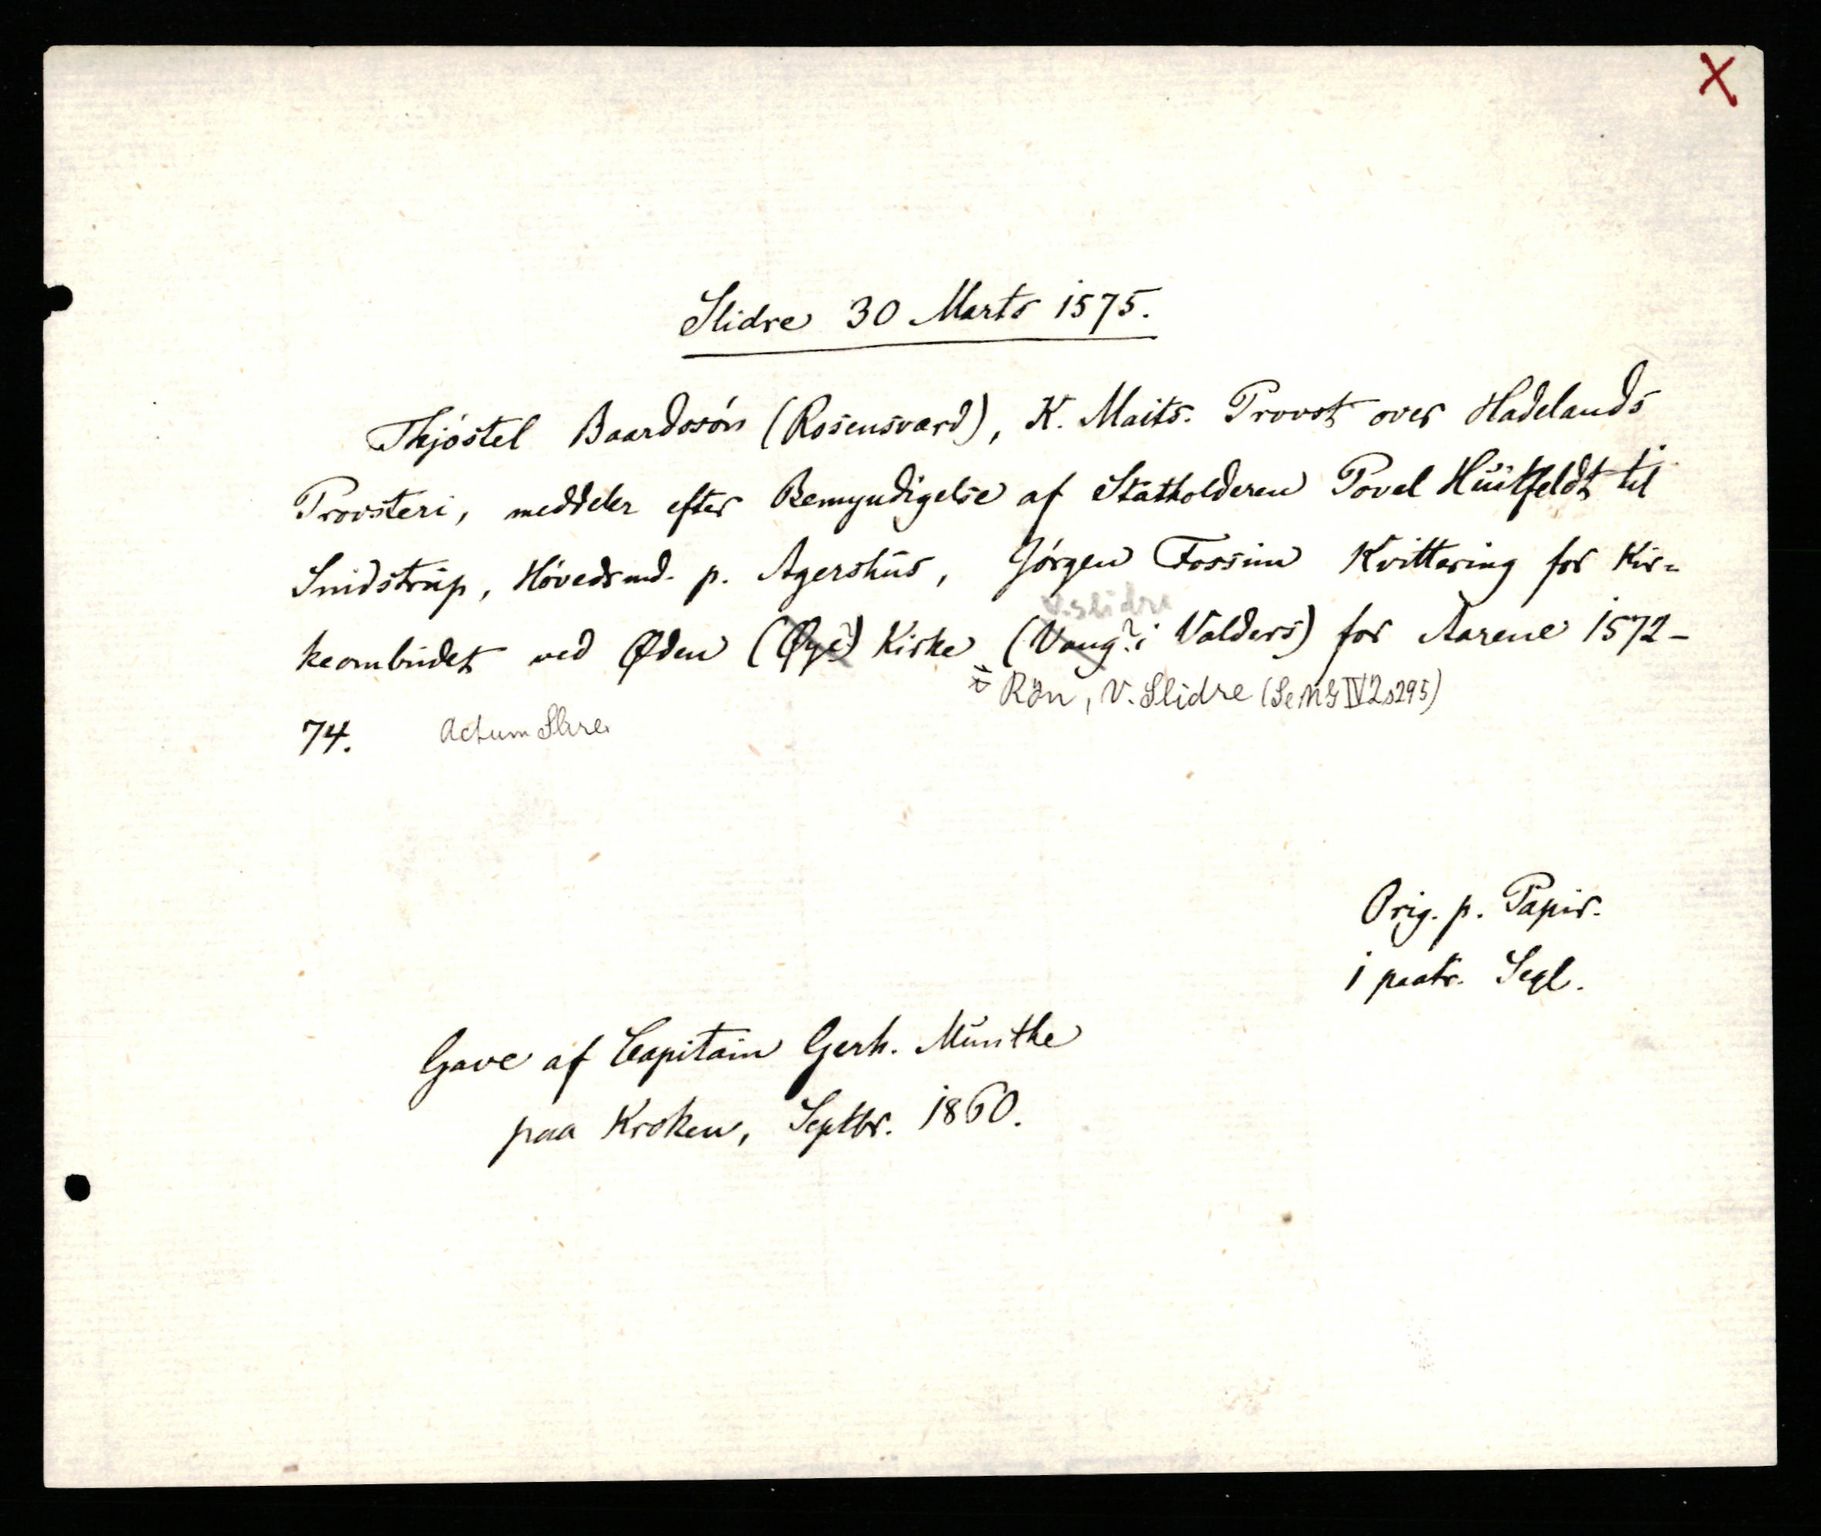 X
Slidre 30 Marts 1575.
Thjóstel Baardssón (Rosensværd), K. Maits. Provst over Hadelands
Provsteri, meddeler efter Bemyndigelse af Statholderen Povel Huitfeldt til
Snidstrup, Hóvedsmd. p. Agershus, Jórgen Fossim Kvittering for Kir-
V. Slidre
keombudet ved Øden (Øye?) Kirke (Vang? i Valders) for Aarene 1572-
Rön, V. Slidre (Se NG IV2 s295)
74. Actum Slire
Orig. p. Papir.
1 paatr. Segl.
Gave af Capitain Gerh. Munthe
paa Kroken, Septbr. 1860.